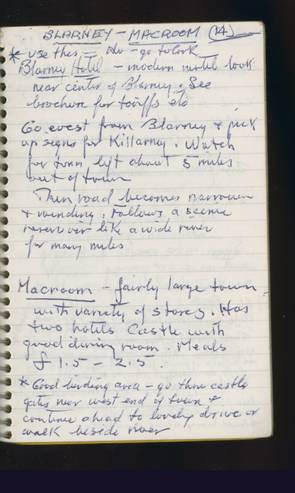 BLARNEY - MACROOM (14)
* use this - No - go to Cork
Blarney Hotel - modern motel look
near center of Blarney. See
brochure for tariffs etc
Go west from Blarney & pick
up signs for Killarney. Watch
for turn left about 5 miles
out of town
Then road becomes narrower
& winding. Follows a scenic
reservoir like a wide river
for many miles
Macroom - fairly large town
with variety of stores. Has
two hotels Castle with
good dining room. Meals
£ 1.5 - 2.5.
* Good birding area - go thru castle
gates near west end of town &
continue ahead to lovely drive or
walk beside river